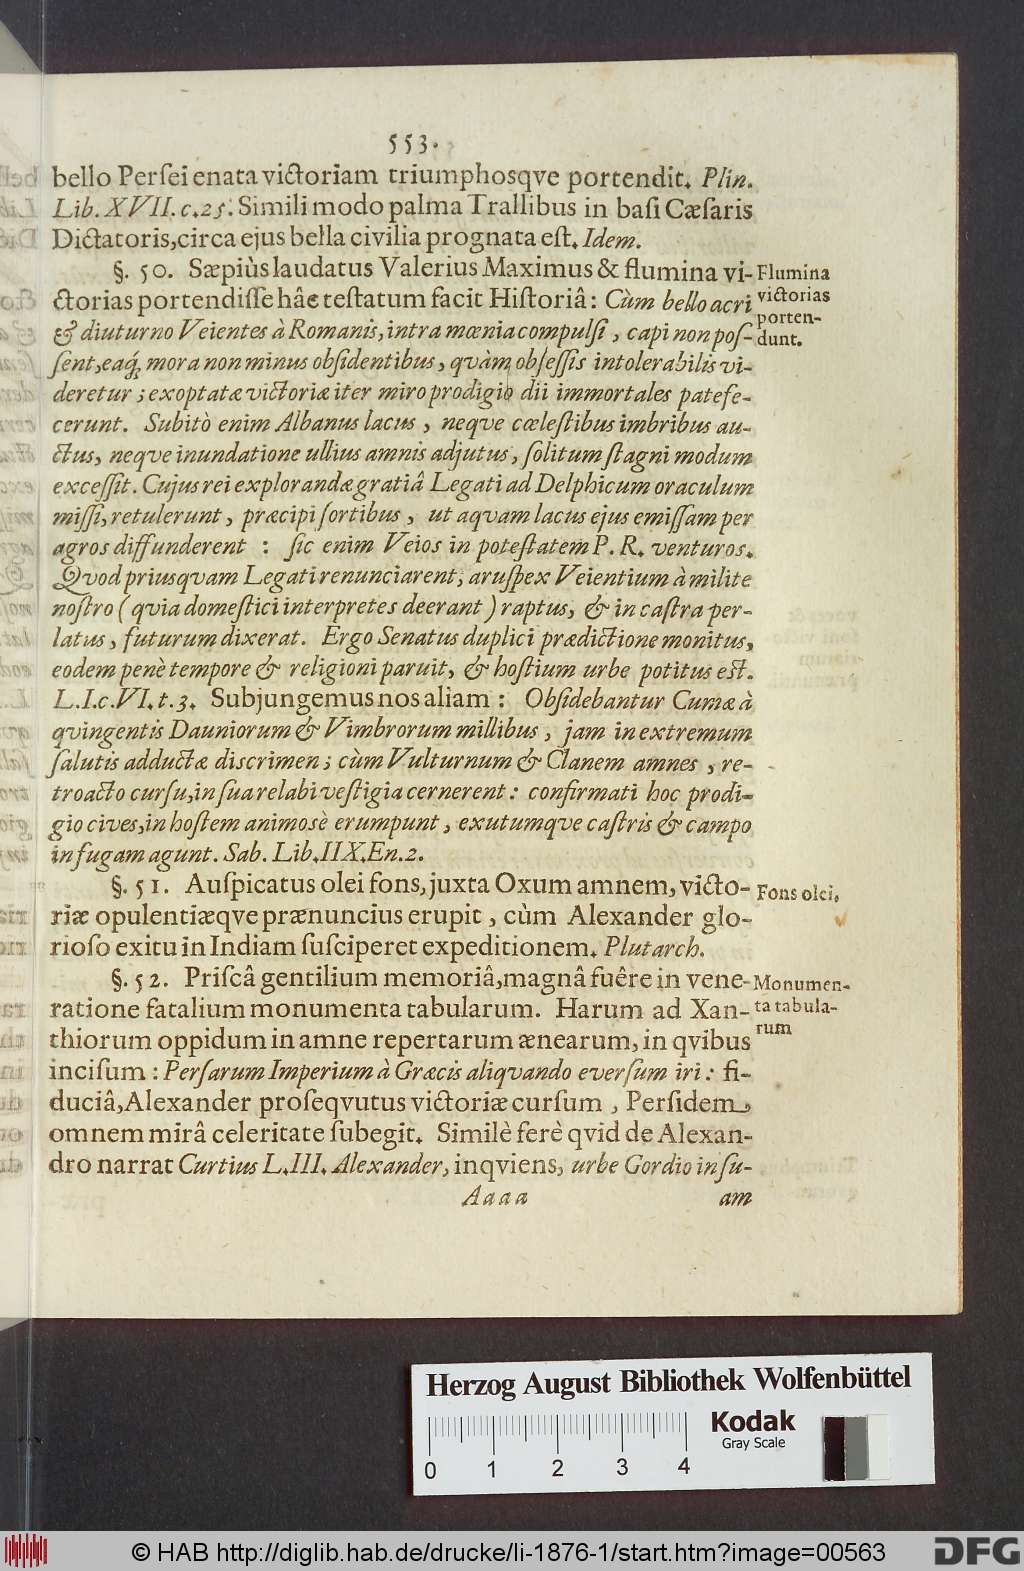 553.
bello Perſei enata victoriam triumphosqve portendit. Plin.
Lib. XVII. c. 25. Simili modo palma Trallibus in baſi Cæſaris
Dictatoris, circa ejus bella civilia prognata eſt. Idem.
§. 50. Sæpiùs laudatus Valerius Maximus & flumina vi-
ctorias portendiſſe hâc teſtatum facit Hiſtoriâ: Cùm bello acri
& diuturno Veientes à Romanis, intra mœnia compulſi, capi non poſ-
ſent, eaq; mora non minus obſidentibus, quàm obſeſſis intolerabilis vi-
deretur; exoptatæ victoriæ iter miro prodigio dii immortales patefe-
cerunt. Subitò enim Albanus lacus, neqve cœleſtibus imbribus au-
ctus, neqve inundatione ullius amnis adjutus, ſolitum ſtagni modum
exceſſit. Cujus rei explorandæ gratiâ Legati ad Delphicum oraculum
miſſi, retulerunt, præcipi ſortibus, ut aqvam lacus ejus emiſſam per
agros diffunderent: ſic enim Veios in poteſtatem P. R. venturos.
Qvod priusqvam Legati renunciarent, aruſpex Veientium à milite
noſtro (qvia domeſtici interpretes deerant) raptus, & in caſtra per-
latus, futurum dixerat. Ergo Senatus duplici prædictione monitus,
eodem penè tempore & religioni paruit, & hoſtium urbe potitus eſt.
L. I. c. VI. t. 3. Subjungemus nos aliam: Obſidebantur Cumæ à
qvingentis Dauniorum & Vimbrorum millibus, jam in extremum
ſalutis adductæ discrimen; cùm Vulturnum & Clanem amnes, re-
troacto curſu, in ſua relabi veſtigia cernerent: confirmati hoc prodi-
gio cives, in hoſtem animosè erumpunt, exutumqve caſtris & campo
in fugam agunt. Sab. Lib. IIX. En. 2.
§. 51. Auſpicatus olei fons, juxta Oxum amnem, victo-
riæ opulentiæqve prænuncius erupit, cùm Alexander glo-
rioſo exitu in Indiam ſuſciperet expeditionem. Plutarch.
§. 52. Priſcâ gentilium memoriâ, magnâ fuêre in vene-
ratione fatalium monumenta tabularum. Harum ad Xan-
thiorum oppidum in amne repertarum ænearum, in qvibus
inciſum: Perſarum Imperium à Græcis aliqvando everſum iri: fi-
duciâ, Alexander proſeqvutus victoriæ curſum, Perſidem,
omnem mirâ celeritate ſubegit. Similè ferè qvid de Alexan-
dro narrat Curtius L. III. Alexander, inqviens, urbe Gordio in ſu-
Aaaa am
Flumina
victorias
porten-
dunt.
Fons olei.
Monumen-
ta tabula-
rum
Herzog August Bibliothek Wolfenbüttel
Kodak
Gray Scale
0 1 2 3 4
© HAB http://diglib.hab.de/drucke/li-1876-1/start.htm?image=00563
DFG